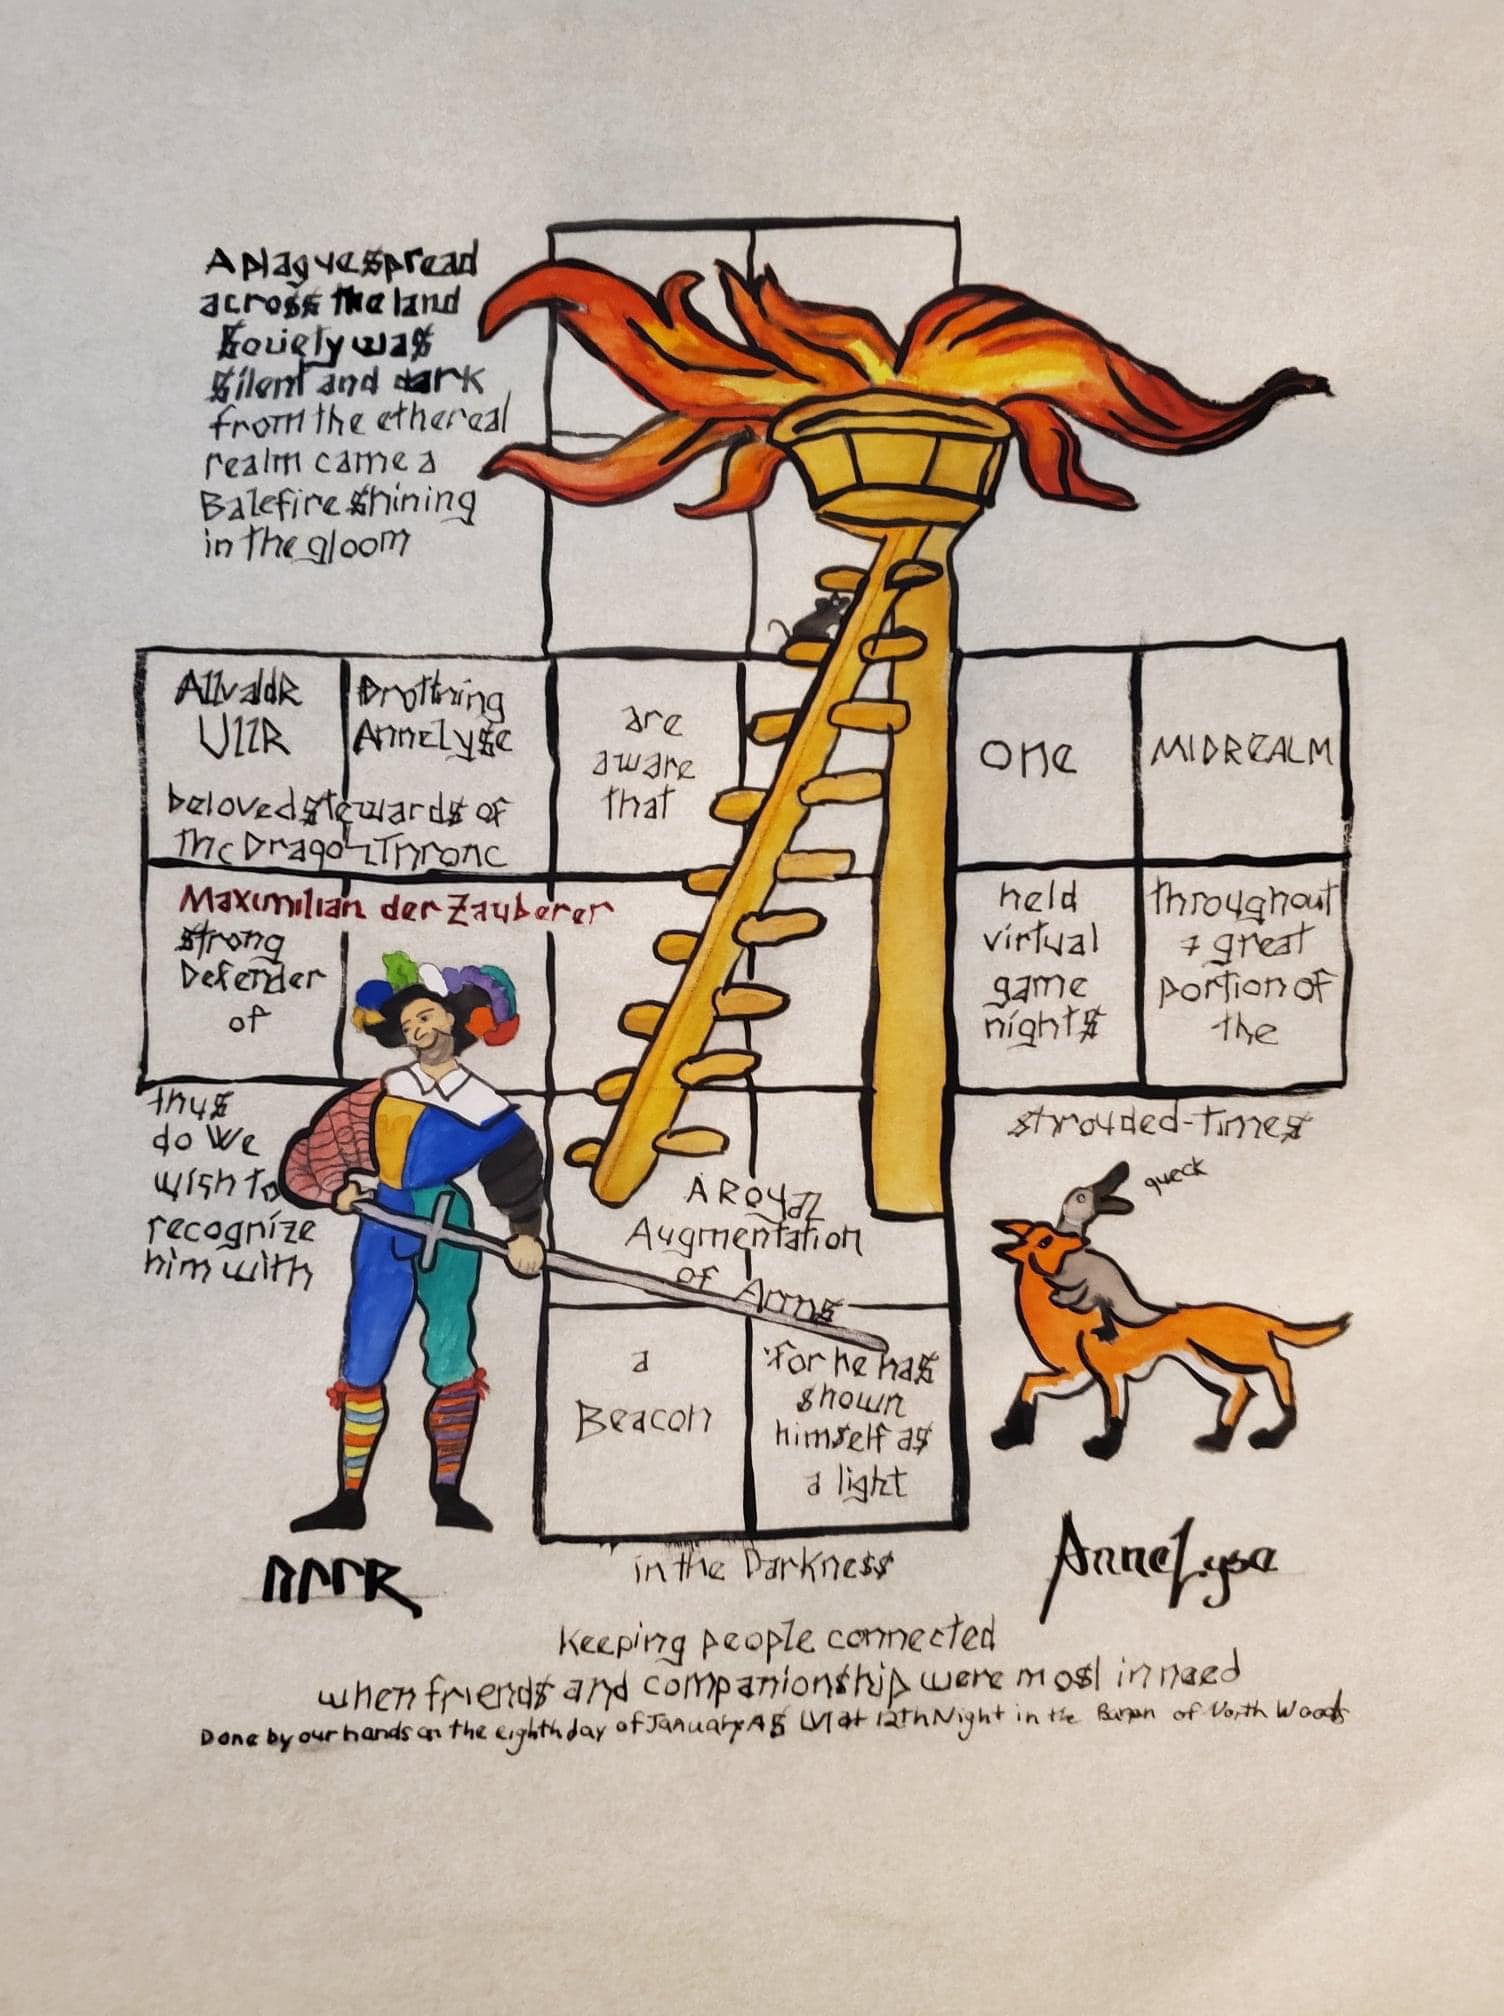 A plague spread
across the land
Society was
silent and dark
from the ethereal
realm came a
Balefire shining
in the gloom
AllvaldR
UllR
Drottning
AnneLyse
beloved stewards of
the Dragon Throne
are
aware
that
one
MIDREALM
Maximilian der Zauberer
strong
Defender
of
held
virtual
game
nights
throughout
a great
portion of
the
thus
do we
wish to
recognize
him with
A Royal
Augmentation
of Arms
strouded-times
queck
a
Beacon
for he has
shown
himself as
a light
in the Darkness
AnneLyse
Keeping people connected
when friends and companionship were most in need
Done by our hands on the eighth day of January AS LVI at 12th Night in the Baron of North Woods